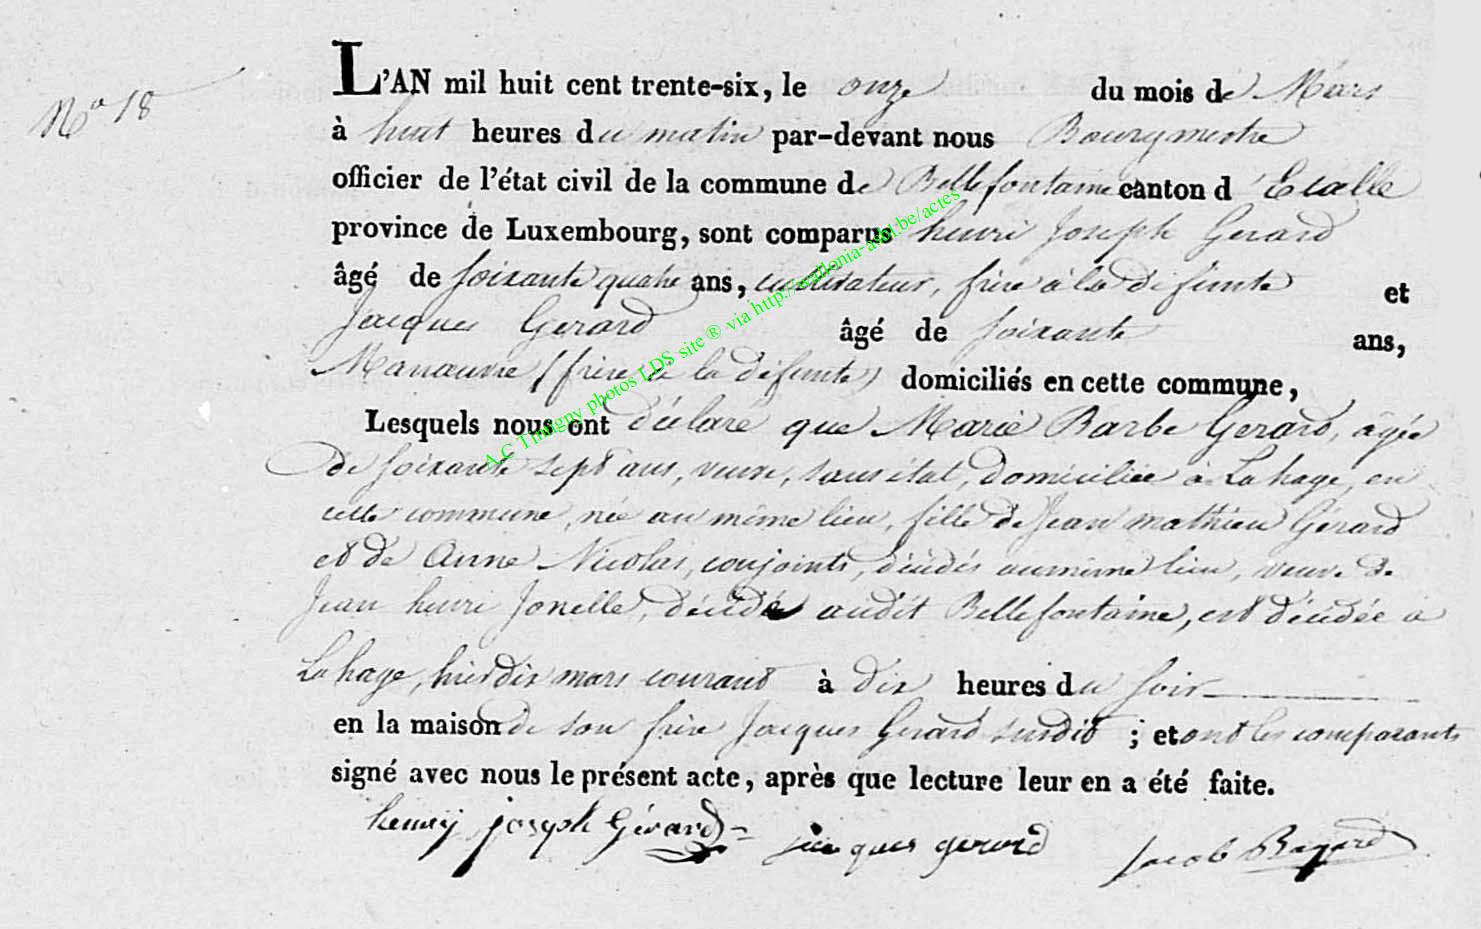 N° 18
L'AN mil huit cent trente-six, le onze du mois de Mars
à huit heures du matin par-devant nous Bourgmestre
officier de l'état civil de la commune de Bellefontaine canton d'Etalle
province de Luxembourg, sont comparus henri Joseph Gerard
âgé de soixante quatre ans, cultivateur, frère à la défunte et
Jacques Gerard âgé de soixante ans,
Manœuvre (frère à la défunte) domiciliés en cette commune,
Lesquels nous ont déclaré que Marie Barbe Gerard, agée
de soixante sept ans, veuve, sans état, domiciliée à Lahage, en
cette commune, née au même lieu, fille de Jean mathieu Gérard
et de Anne Nicolas, conjoints, décédés au même lieu, veuve de
Jean henri Jonelle, décédé audit Bellefontaine, est décédée à
Lahage, hier dix mars courant à dix heures du soir
en la maison de son frère Jacques Gerard susdit ; et ont les comparants
signé avec nous le présent acte, après que lecture leur en a été faite.
henry joseph Gérard jacques gerard Jacob
A.C Tintigny photos LDS site ® via http://wallonia-asbl.be/actes